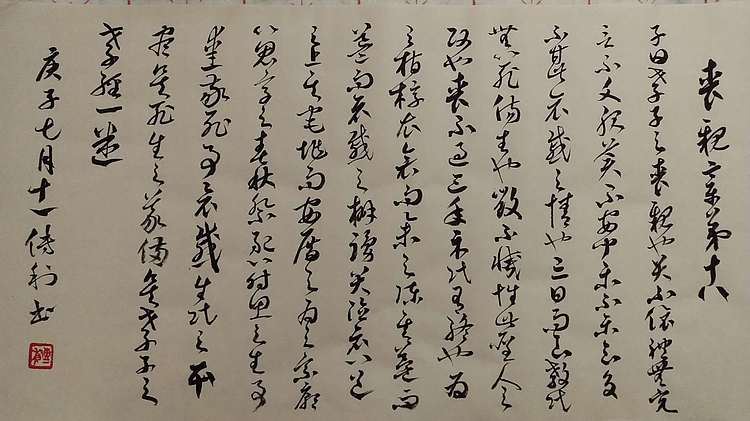 喪親章第十八
子曰孝子之喪親也哭不依禮無容
言不文服美不安聞樂不樂食旨
不甘此哀戚之情也三日而食教民
無以死傷生也毀不滅性此聖人之
政也喪不過三年示民有終也為
之棺椁衣衾而舉之陳其簠
簋而哀戚之擗踊哭泣哀以送
之卜其宅兆而安厝之為之宗廟
以鬼享之春秋祭祀以時思之生事
愛敬死事哀戚生民之本
盡矣死生之義備矣孝子之
孝經一
庚子七月十一傳利书